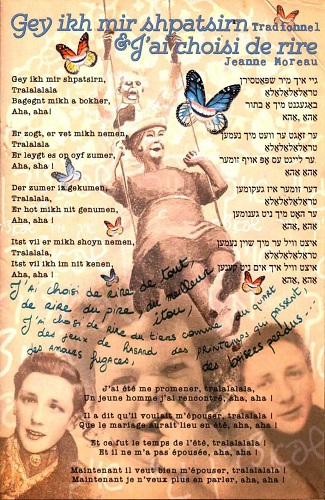 Gey ikh mir shpatsirn Tradionnel
& J'ai choisi de rire
Jeanne Moreau
Gey ikh mir shpatsirn,
Tralalalala
Bagegnt mikh a bokher,
Aha, aha!
Er zogt, er vet mikh nemen,
Tralalala,
Er leygt es on oyf zumer,
Aha, aha !
Der zumer iz gekumen,
Tralalala,
Er hot mikh nit genumen,
Aha, aha !
Itst vil er mikh shoyn nemen,
Tralalala,
Itst vil ikh im nit kenen,
Aha, aha !
גיי איך מיר שפּאַטסירן
טראַלאַלאַלאַלאַ
באַגעגנט מיך אַ בחור
אַהאַ, אַהאַ
ער זאָגט ער וועט מיך נעמען
טראַלאַלאַלאַ
ער לייגט עס אָפּ אויף זומער
אַהאַ, אַהאַ
דער זומער איז געקומען
טראַלאַלאַלאַ
ער האָט מיך ניט גענומען
אַהאַ, אַהאַ
איצט וויל ער מיך שוין נעמען
טראַלאַלאַלאַ
איצט וויל איך אים ניט קענען
אַהאַ, אַהאַ
J'ai choisi de rire de tout,
de rire du pire, du meilleur
J'ai choisi de rire du tiers comme du quart
des jeux de hasard des printemps qui passent,
des amours fugaces, des baisers perdus...
J'ai été me promener, tralalalala,
Un jeune homme j'ai rencontré, aha, aha !
Il a dit qu'il voulait m'épouser, tralalala !
Que le mariage aurait lieu en été, aha, aha !
Et ce fut le temps de l'été, tralalala !
Et il ne m'a pas épousée, aha, aha !
Maintenant il veut bien m'épouser, tralalalala !
Maintenant je n'veux plus en parler, aha, aha !